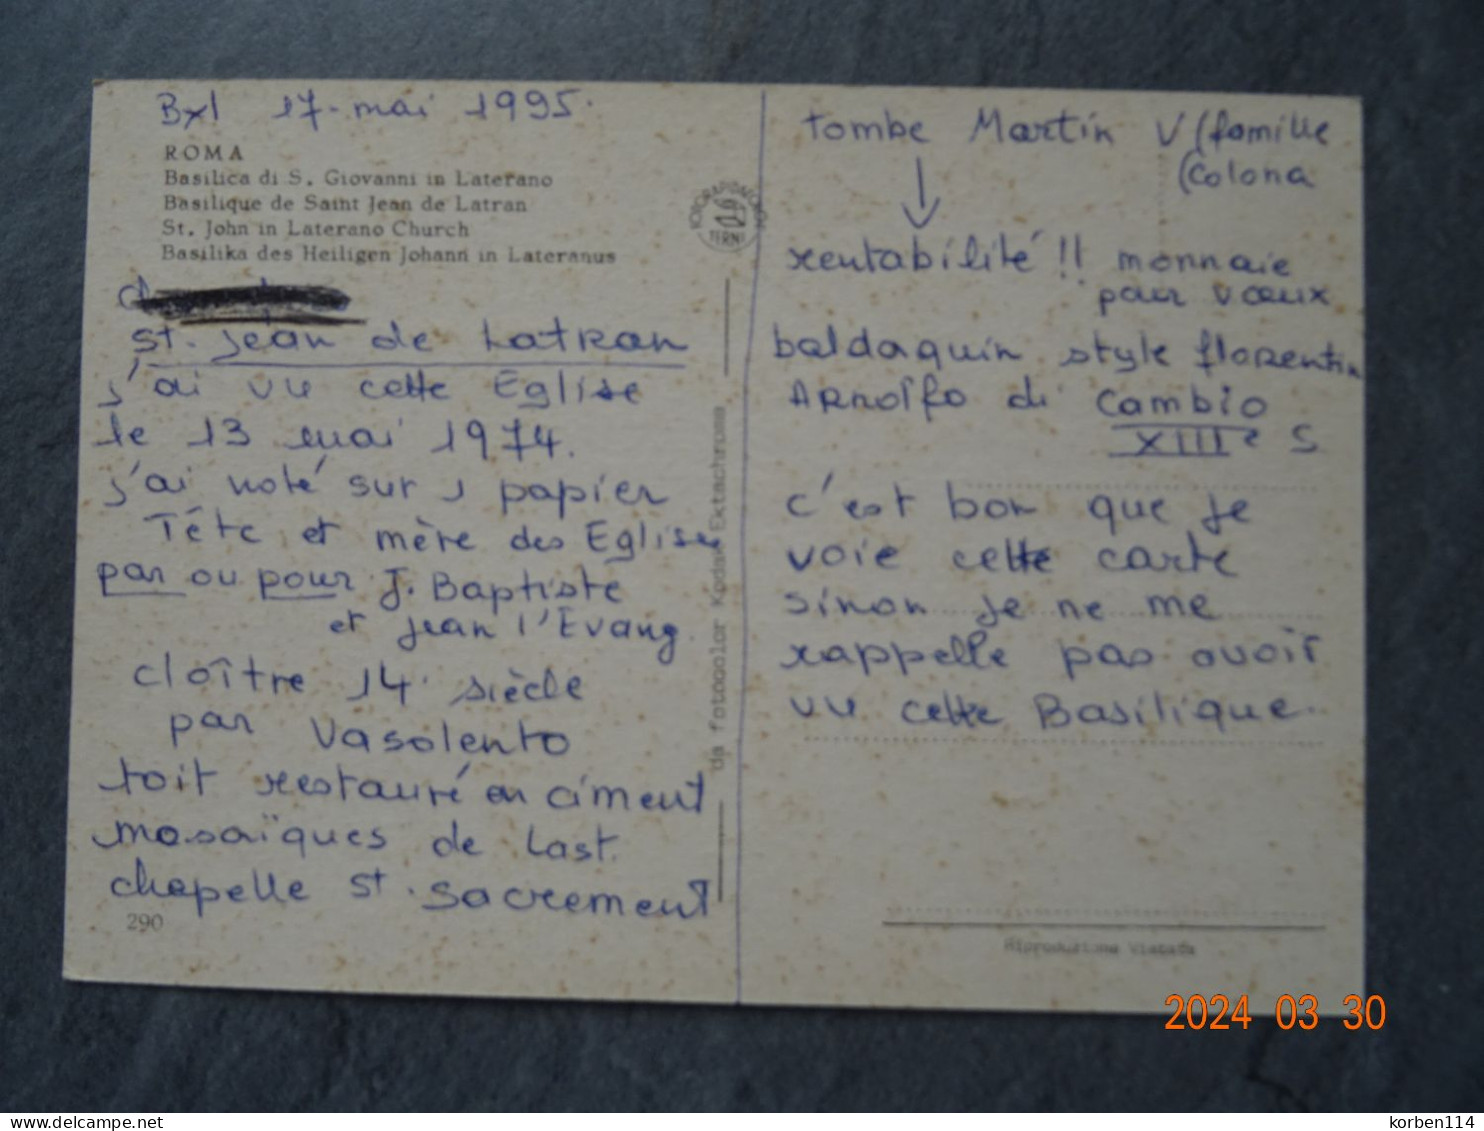 Bxl 17-mai 1995.
ROMA
Basilica di S. Giovanni in Laterano
Basilique de Saint Jean de Latran
St. John in Laterano Church
Basilika des Heiligen Johann in Lateranus
st. jean de Latran
j'ai vu cette Eglise
le 13 mai 1974.
j'ai noté sur 1 papier
Tête et mère des Eglises
par ou pour J. Baptiste
et jean l'Evang.
cloître 14. siècle
par Vasolento
toit restauré en ciment
mosaïques de Last.
chapelle st. sacrement
290
da fotocolor Kodak Ektachrome
TERNI
tombe Martin V (famille
(Colona
↓
rentabilité !! monnaie
pour vœux
baldaquin style florentin
Arnolfo di Cambio
XIIIe S
c'est bon que je
voie cette carte
sinon je ne me
rappelle pas avoir
vu cette Basilique.
Riproduzione Vietata
2024 03 30
delcampe.net
korben114